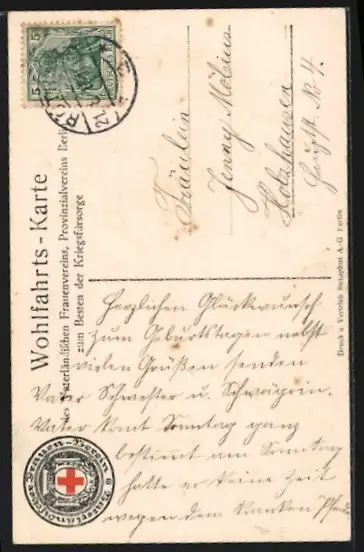 5 5
Wohlfahrts-Karte
des Vaterländischen Frauenvereins, Provinzialvereins Berlin
zum Besten der Kriegsfürsorge
Fräulein
Jenny Möbius
Holzhausen
Hauptstr. N 4.
Herzlichen Glückwunsch
zum Geburtstagen nebst
vielen Grüßen senden
Vater Schwester u. Schwägerin.
Vater komt Sonntag ganz
bestimmt am Sonntag
hatte er keine Zeit
wegen dem kranken Pferd
Druck u. Vertrieb Rotophot A-G Berlin
Vaterländischer Frauen-Verein